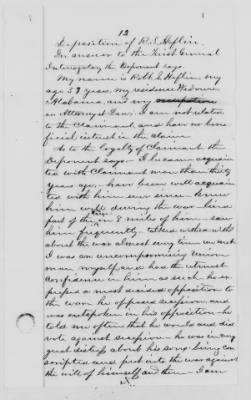 12
Deposition of R. S. Heflin.
In answer to the First General
Interrogatory the Deponent says.
My name is Robt. S. Heflin my
age 57 years, my residence Wedowee
Alabama, and my occupation
an Attorney at Law. I am not related
to the Claimant, and have no bene-
ficial interest in the claim
As to the loyalty of Claimant the
Deponent says - I became acquain
ted with Claimant more than thirty
years ago, have been well acquain
ted with him ever since. knew
him well during the war - lived
part of the time in 8 miles of him. saw
him frequently, talked with him
about the war almost every time we met
I was an uncompromising Union
man myself, and had the utmost
confidence in him as such. he ex-
pressed a most decided opposition to
the war. he opposed secession and
was outspoken in his opposition - he
told me often that he would and did
vote against secession. he was in very
great distress about his sons being con
scripted and put into the war against
the will of himself and them. I am